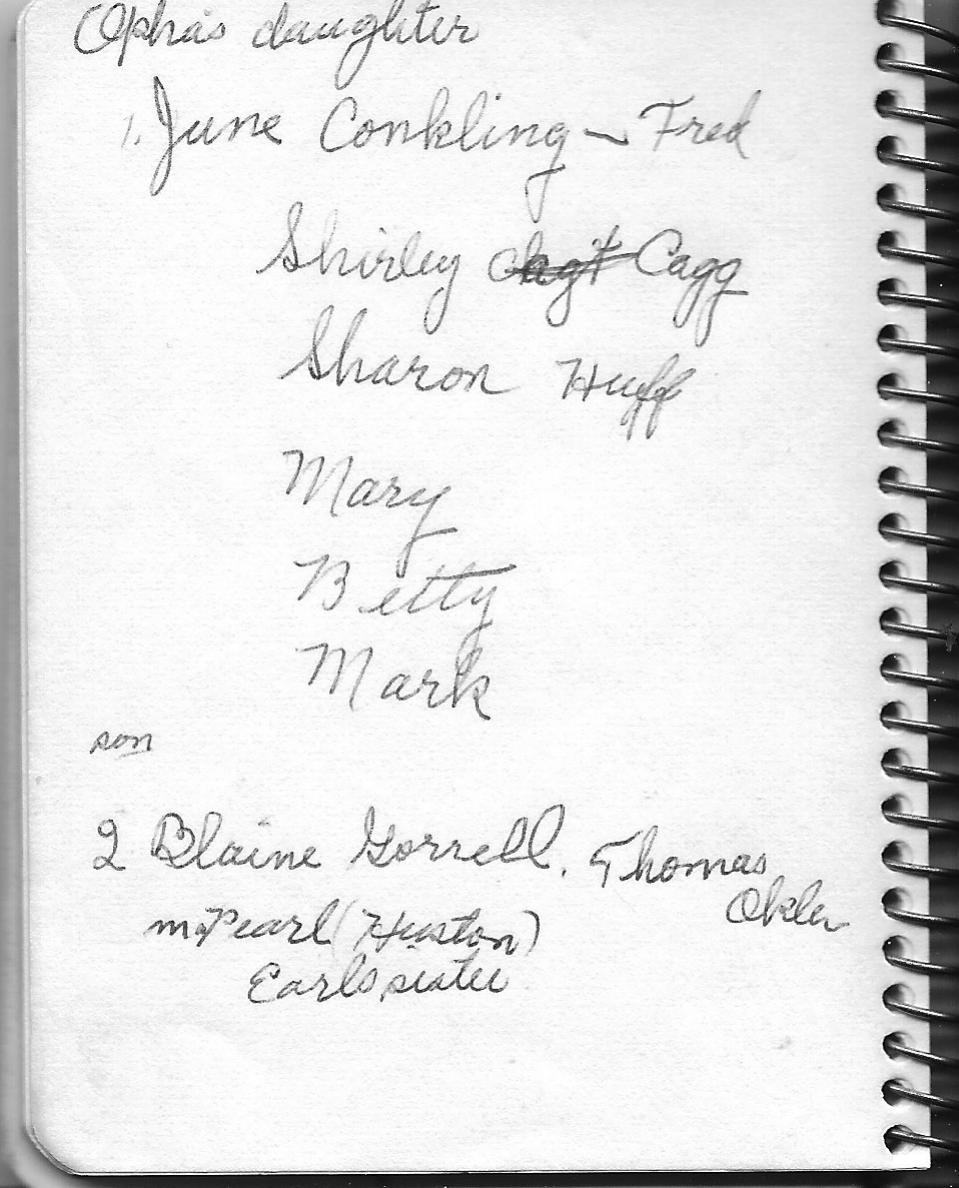 Opha's daughter
1. June Conkling ~ Fred
Shirley Cagg
Sharon Huff
Mary
Betty
Mark
son
2 Blaine Gorrell. Thomas
m. Pearl (Huston)
Earls sister